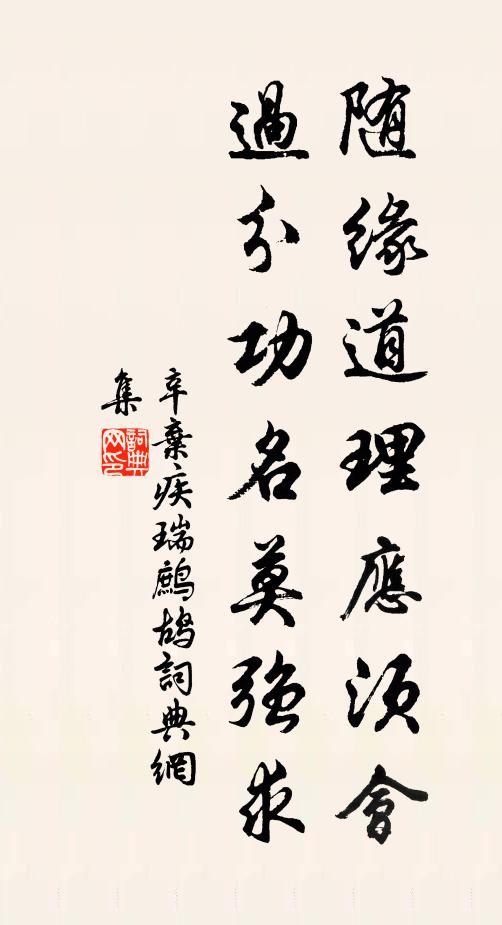 随緣道理應須會
過分功名莫強求
辛棄疾瑞鷓鴣詞典網
集
詞典
网印